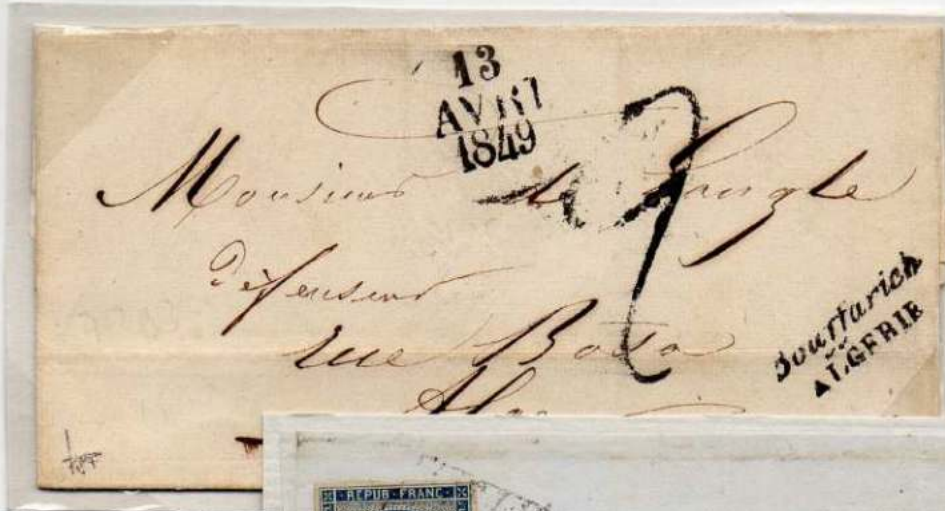 13
AVRIL
1849
Monsieur de Langle
défenseur
rue
Bouffarick
ALGÉRIE
REPUB·FRANC·